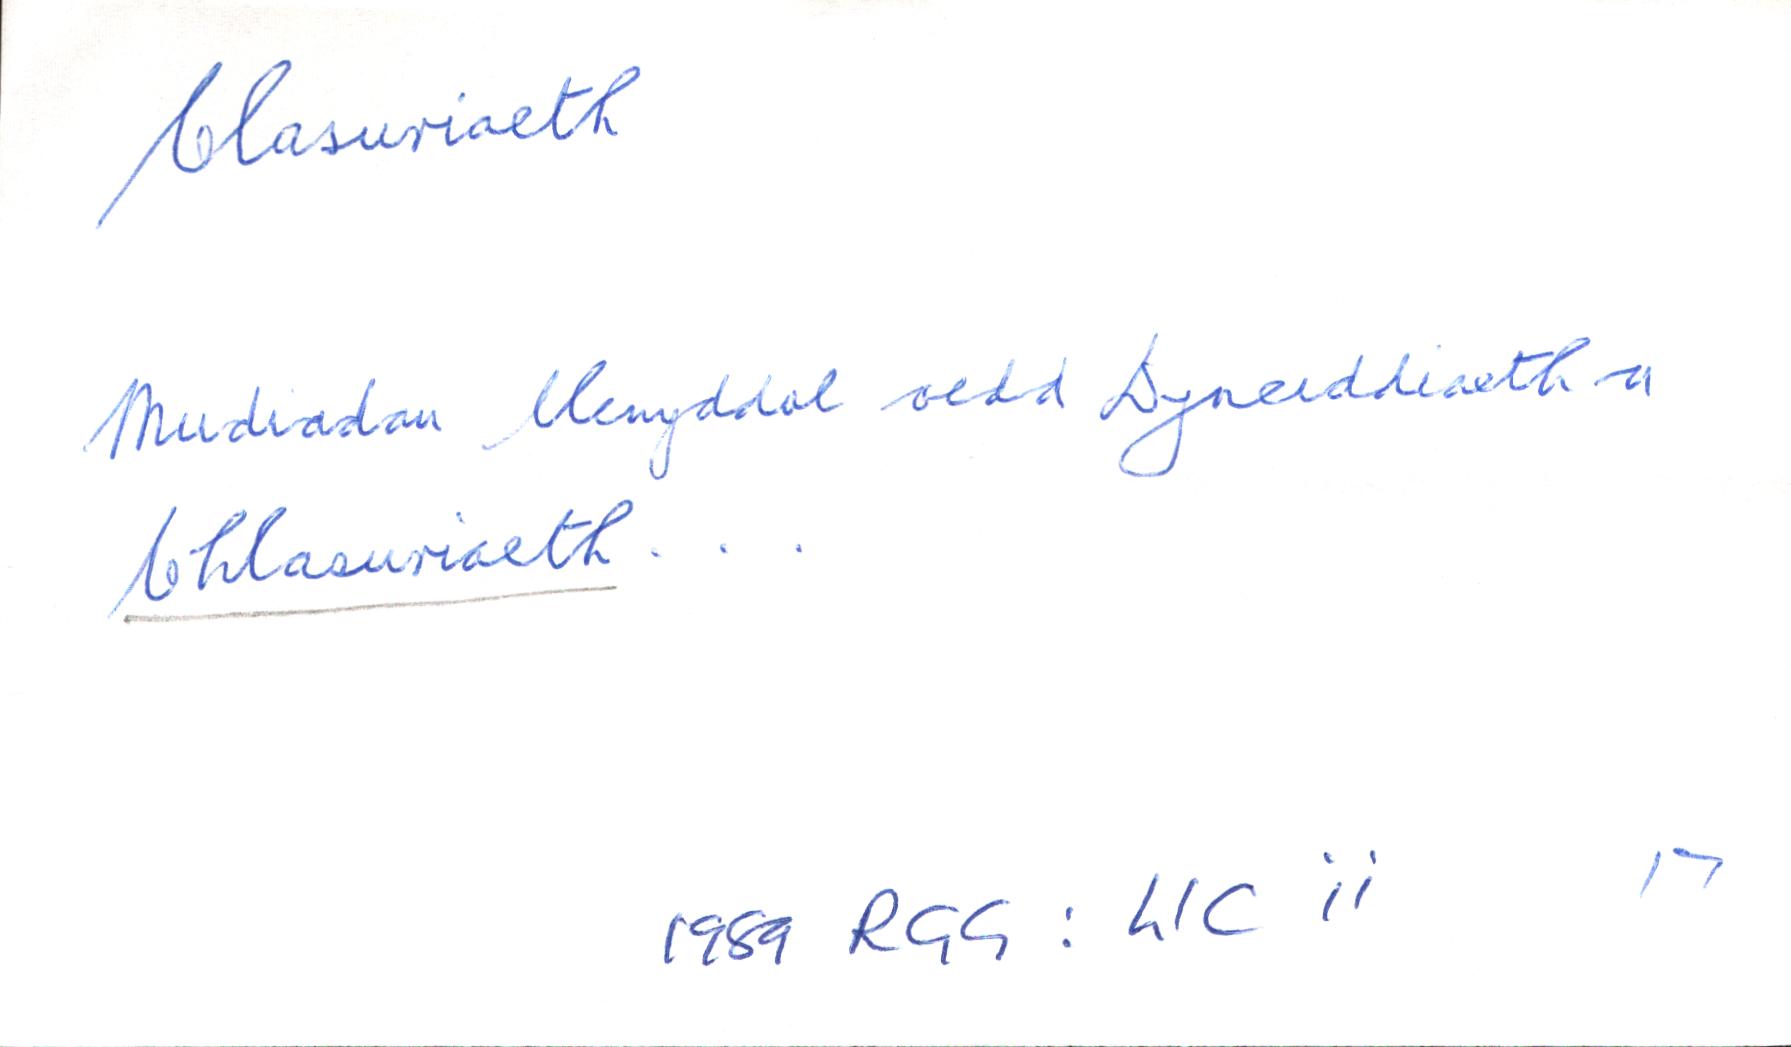 Clasuriaeth
Mudiadau llenyddol oedd Dyneiddiaeth a
Chlasuriaeth . . .
1989 RGG : LlC ii 17